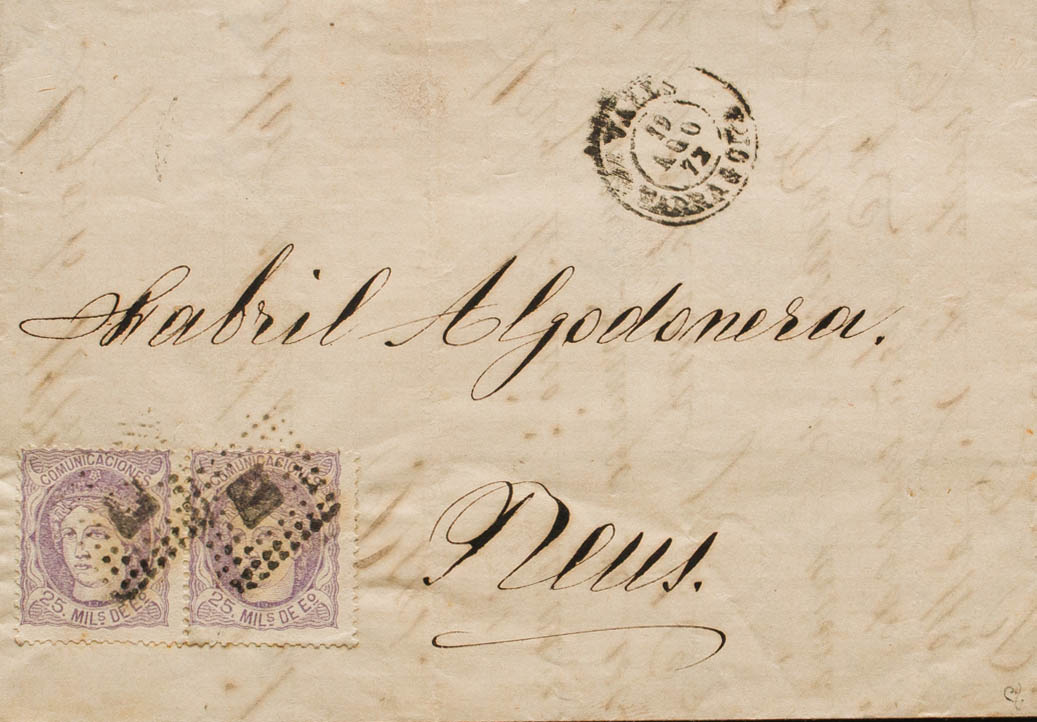 19
AGO
72
TARRAGONA
Fabril Algodonera.
Reus.
COMUNICACIONES
25. MILS DE Eº
COMUNICACIONES
25. MILS DE Eº